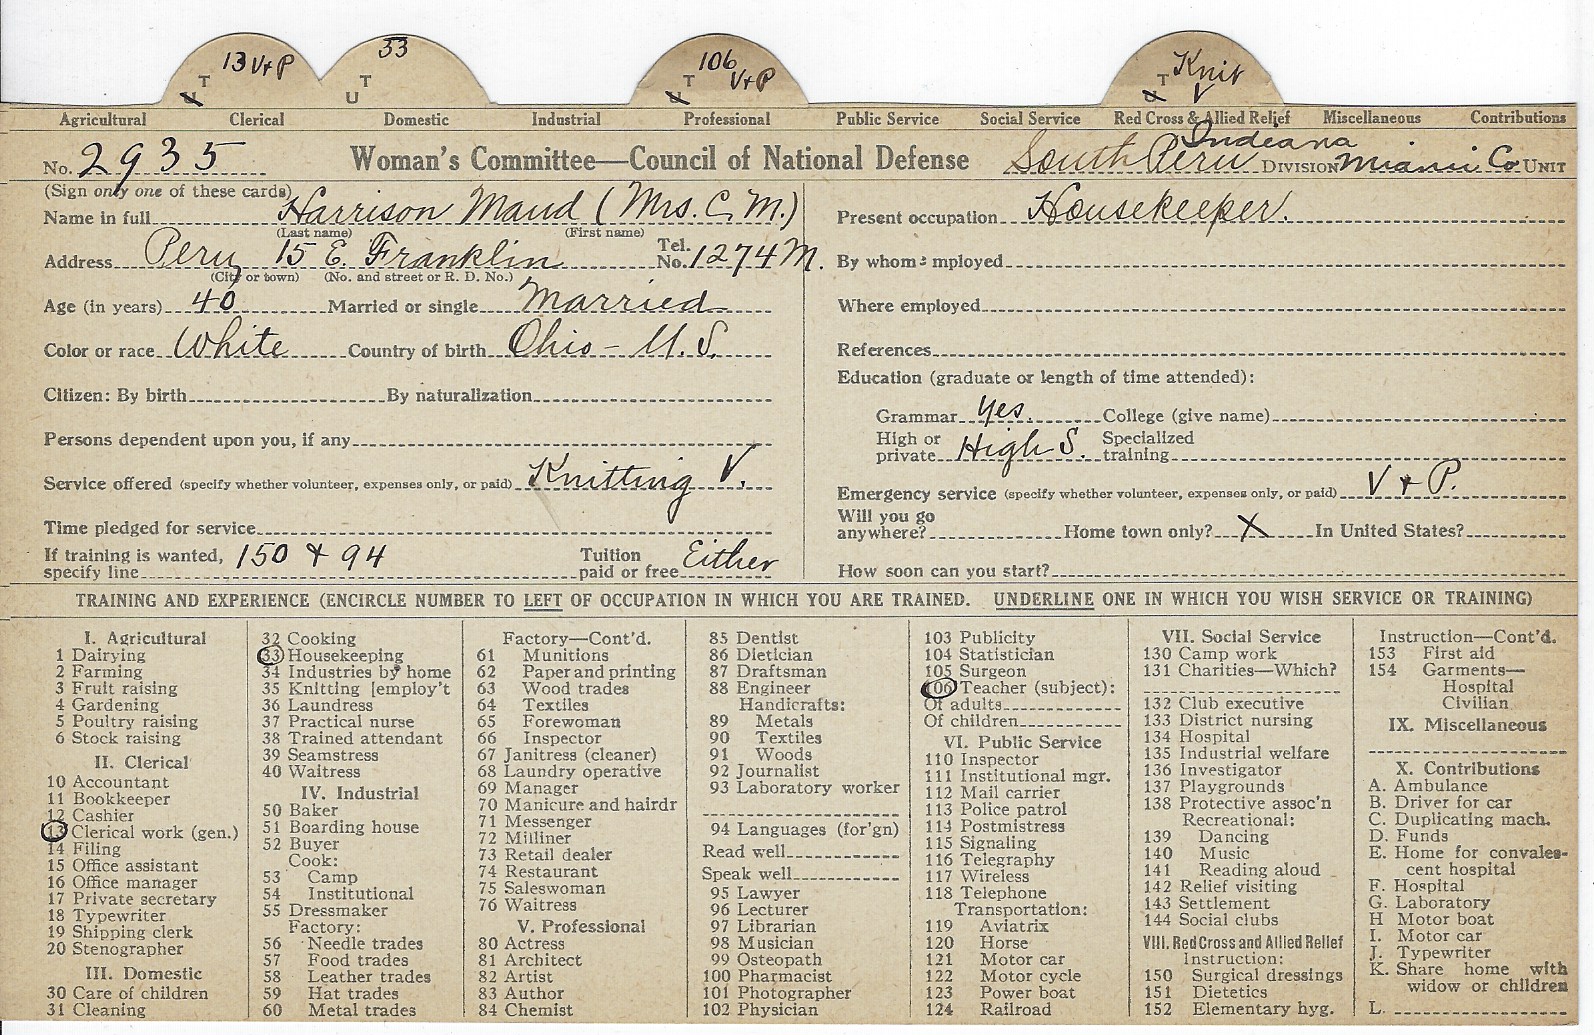 13 V+P 33 106 V+P Knit V
U T U T U T U T
Agricultural Clerical Domestic Industrial Professional Public Service Social Service Red Cross & Allied Relief Miscellaneous Contributions
No. 2935 Woman's Committee—Council of National Defense South Peru Indiana DIVISION Miami Co UNIT
(Sign only one of these cards)
Name in full Harrison Maud (Mrs. C. M.)
(Last name) (First name)
Address Peru, 15 E. Franklin Tel. No. 1274 M.
(City or town) (No. and street or R. D. No.)
Age (in years) 40 Married or single Married
Color or race White Country of birth Ohio - U.S.
Citizen: By birth By naturalization
Persons dependent upon you, if any
Service offered (specify whether volunteer, expenses only, or paid) Knitting V.
Time pledged for service
If training is wanted, specify line 150 + 94 Tuition paid or free Either
Present occupation Housekeeper.
By whom employed
Where employed
References
Education (graduate or length of time attended):
Grammar Yes. College (give name)
High or private High S. Specialized training
Emergency service (specify whether volunteer, expenses only, or paid) V + P.
Will you go anywhere? Home town only? X In United States?
How soon can you start?
TRAINING AND EXPERIENCE (ENCIRCLE NUMBER TO LEFT OF OCCUPATION IN WHICH YOU ARE TRAINED. UNDERLINE ONE IN WHICH YOU WISH SERVICE OR TRAINING)
I. Agricultural
1 Dairying
2 Farming
3 Fruit raising
4 Gardening
5 Poultry raising
6 Stock raising
II. Clerical
10 Accountant
11 Bookkeeper
12 Cashier
13 Clerical work (gen.)
14 Filing
15 Office assistant
16 Office manager
17 Private secretary
18 Typewriter
19 Shipping clerk
20 Stenographer
III. Domestic
30 Care of children
31 Cleaning
32 Cooking
33 Housekeeping
34 Industries by home
35 Knitting [employ't
36 Laundress
37 Practical nurse
38 Trained attendant
39 Seamstress
40 Waitress
IV. Industrial
50 Baker
51 Boarding house
52 Buyer
Cook:
53 Camp
54 Institutional
55 Dressmaker
Factory:
56 Needle trades
57 Food trades
58 Leather trades
59 Hat trades
60 Metal trades
Factory—Cont'd.
61 Munitions
62 Paper and printing
63 Wood trades
64 Textiles
65 Forewoman
66 Inspector
67 Janitress (cleaner)
68 Laundry operative
69 Manager
70 Manicure and hairdr
71 Messenger
72 Milliner
73 Retail dealer
74 Restaurant
75 Saleswoman
76 Waitress
V. Professional
80 Actress
81 Architect
82 Artist
83 Author
84 Chemist
85 Dentist
86 Dietician
87 Draftsman
88 Engineer
Handicrafts:
89 Metals
90 Textiles
91 Woods
92 Journalist
93 Laboratory worker
94 Languages (for'gn)
Read well
Speak well
95 Lawyer
96 Lecturer
97 Librarian
98 Musician
99 Osteopath
100 Pharmacist
101 Photographer
102 Physician
103 Publicity
104 Statistician
105 Surgeon
106 Teacher (subject):
Of adults
Of children
VI. Public Service
110 Inspector
111 Institutional mgr.
112 Mail carrier
113 Police patrol
114 Postmistress
115 Signaling
116 Telegraphy
117 Wireless
118 Telephone
Transportation:
119 Aviatrix
120 Horse
121 Motor car
122 Motor cycle
123 Power boat
124 Railroad
VII. Social Service
130 Camp work
131 Charities—Which?
132 Club executive
133 District nursing
134 Hospital
135 Industrial welfare
136 Investigator
137 Playgrounds
138 Protective assoc'n
Recreational:
139 Dancing
140 Music
141 Reading aloud
142 Relief visiting
143 Settlement
144 Social clubs
VIII. Red Cross and Allied Relief
Instruction:
150 Surgical dressings
151 Dietetics
152 Elementary hyg.
Instruction—Cont'd.
153 First aid
154 Garments—
Hospital
Civilian
IX. Miscellaneous
X. Contributions
A. Ambulance
B. Driver for car
C. Duplicating mach.
D. Funds
E. Home for convales-
cent hospital
F. Hospital
G. Laboratory
H Motor boat
I. Motor car
J. Typewriter
K. Share home with
widow or children
L.